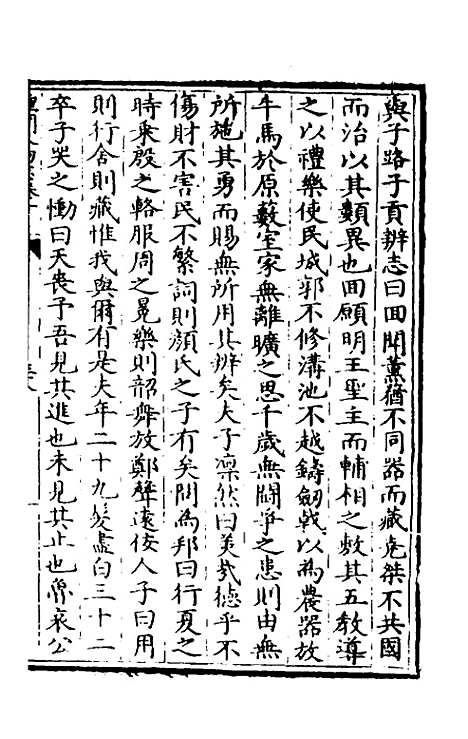 與子路子貢辨志曰回聞薰蕕不同器而藏堯桀不共國
而治以其類異也回願明王聖主而輔相之敷其五教導
之以禮樂使民城郭不修溝池不越鑄劒戟以為農器放
牛馬於原藪室家無離曠之思千歲無鬭爭之患則由無
所施其勇而賜無所用其辨矣夫子凛然曰美哉德乎不
傷財不害民不繁詞則顔氏之子有矣問為邦曰行夏之
時乘殷之輅服周之冕樂則韶舞放鄭聲遠佞人子曰用
則行舍則藏惟我與爾有是夫年二十九髮盡白三十二
卒子哭之慟曰天喪予吾見其進也未見其止也魯哀公